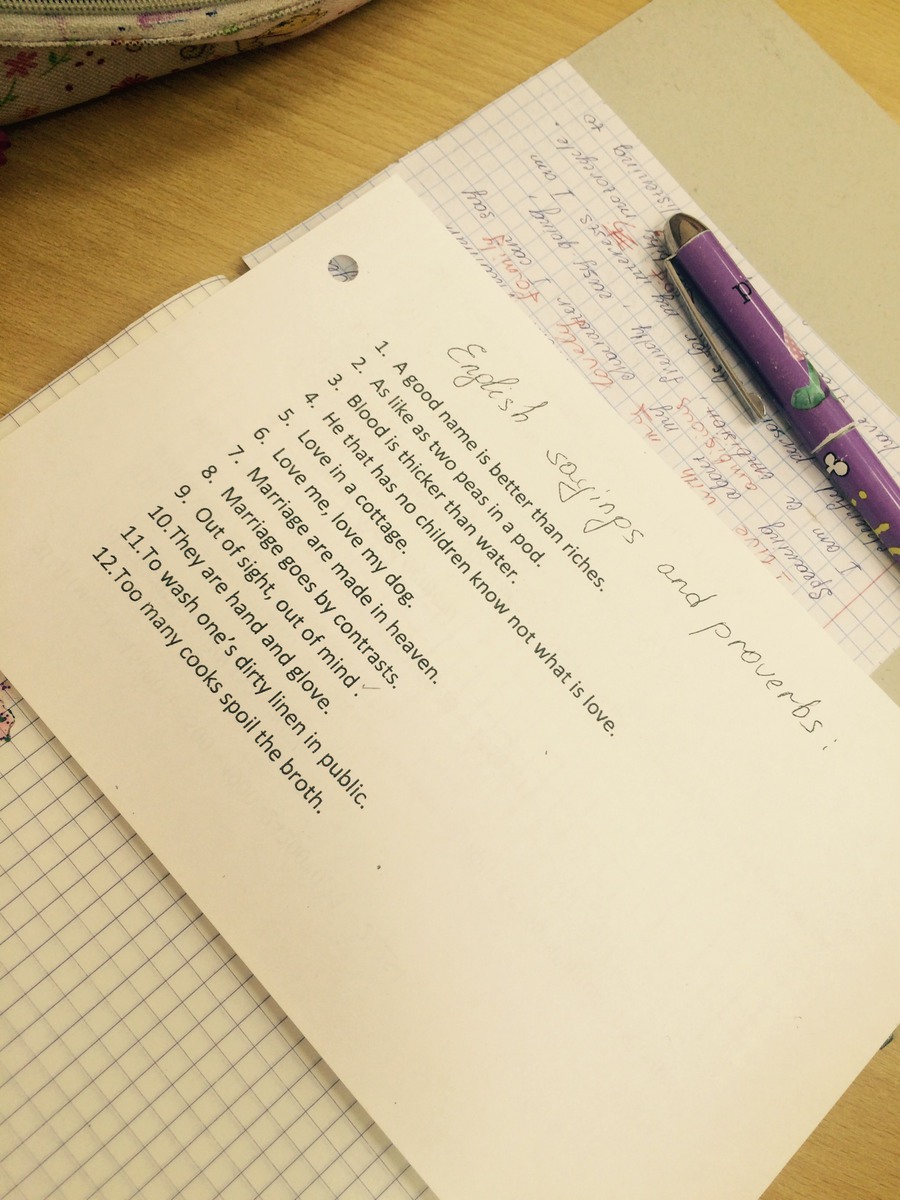 English sayings and proverbs:
1. A good name is better than riches.
2. As like as two peas in a pod.
3. Blood is thicker than water.
4. He that has no children know not what is love.
5. Love in a cottage.
6. Love me, love my dog.
7. Marriage are made in heaven.
8. Marriage goes by contrasts.
9. Out of sight, out of mind.
10.They are hand and glove.
11.To wash one's dirty linen in public.
12.Too many cooks spoil the broth.
Speaking about my character I can say
I am ambisious, friendly, easy going,
listening to
motorcycle.
I am
lovely family